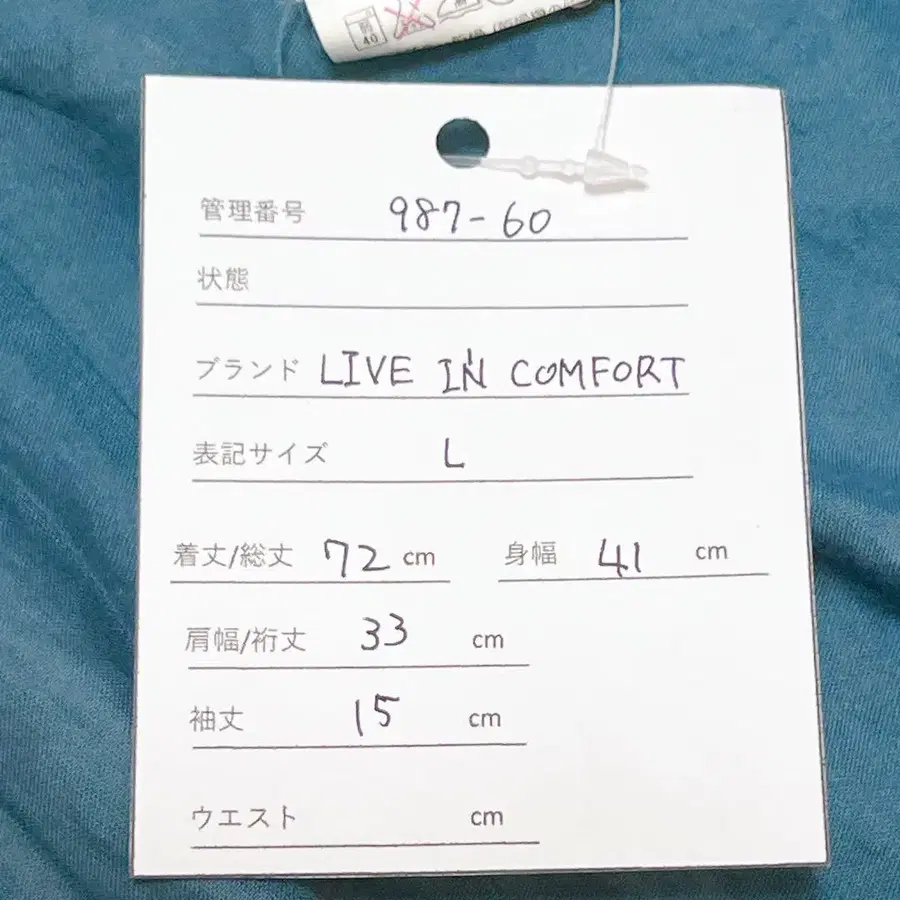 40
管理番号 987-60
状態
ブランド LIVE IN COMFORT
表記サイズ L
着丈/総丈 72 cm 身幅 41 cm
肩幅/裄丈 33 cm
袖丈 15 cm
ウエスト cm